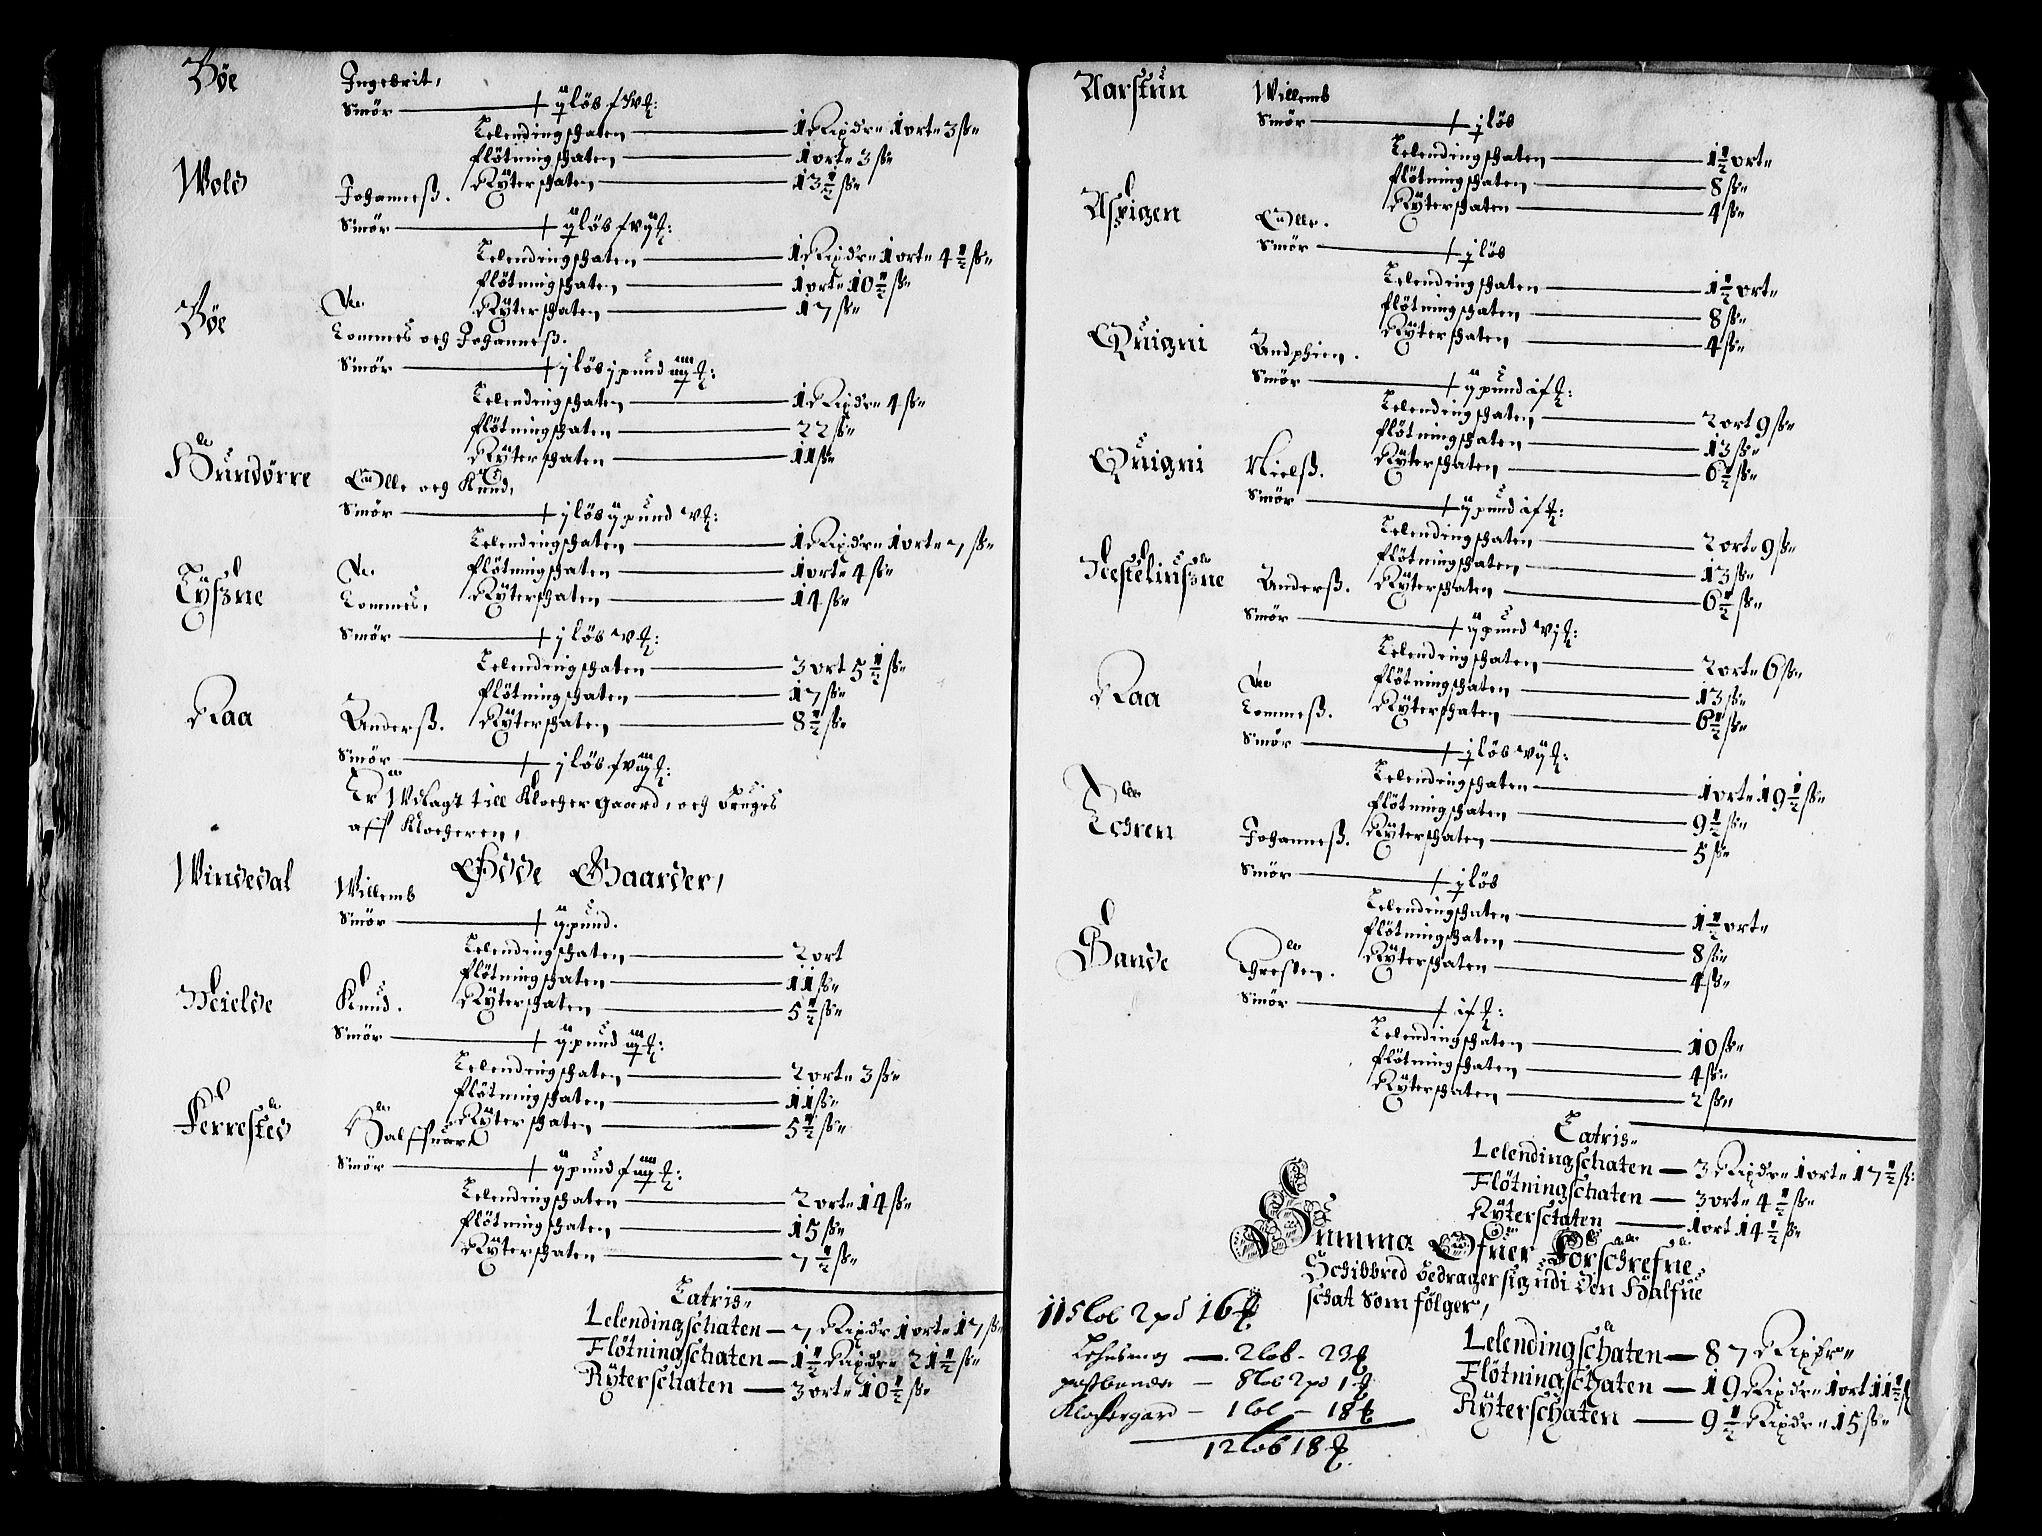 Bøe
Ingebrit,
Smör ij löb
Lelendingschaten 1 Rixdr 1 ort 3 ß
flötningschaten 1 ort 3 ß
Rÿterschaten 13 1/2 ß
Wold
Johanneß.
Smör ij löb
Lelendingschaten 1 Rixdr 1 ort 4 1/2 ß
flötningschaten 1 ort 10 1/2 ß
Rÿterschaten 17 ß
Bøe
Tommes och Johanneß.
Smör j löb j pund
Lelendingschaten 1 Rixdr 4 ß
flötningschaten 22 ß
Rÿterschaten 11 ß
Bundørre
Olle och Knud,
Smör j löb ij pund v
Lelendingschaten 1 Rixdr 1 ort 7 ß
flötningschaten 1 ort 4 ß
Rÿterschaten 14 ß
Lÿszne
Tommes,
Smör j löb v
Lelendingschaten 3 ort 5 1/2 ß
flötningschaten 17 ß
Rÿterschaten 8 1/2 ß
Raa
Anderß.
Smör j löb
Er Udlagt till Klocher gaard, och bruges
aff Klocheren,
Øde Gaarder,
Windedal
Willemb
Smör ij pund.
Lelendingschaten 2 ort
flötningschaten 11 ß
Rÿterschaten 5 1/2 ß
Mielde
Knud.
Smör ij pund
Lelendingschaten 2 ort 3 ß
flötningschaten 11 ß
Rÿterschaten 5 1/2 ß
Ferrested
Halffuar
Smör ij pund
Lelendingschaten 2 ort 14 ß
flötningschaten 15 ß
Rÿterschaten 7 1/2 ß
Latris
Lelendingschaten 7 Rixdr 1 ort 17 ß
Flötningschaten 1 1/2 Rixdr 21 1/2 ß
Rÿterschaten 3 ort 10 1/2 ß
Aarstun
Willemb
Smör j löb
Lelendingschaten 1 1/2 ort
flötningschaten 8 ß
Rÿterschaten 4 ß
Aspigen
Olle.
Smör j löb
Lelendingschaten 1 1/2 ort
flötningschaten 8 ß
Rÿterschaten 4 ß
Quigni
Andphien.
Smör ij pund
Lelendingschaten 2 ort 9 ß
flötningschaten 13 ß
Rÿterschaten 6 1/2 ß
Quigni
Nielß.
Smör ij pund
Lelendingschaten 2 ort 9 ß
flötningschaten 13 ß
Rÿterschaten 6 1/2 ß
Anderß.
Smör ij pund vj
Lelendingschaten 2 ort 6 ß
flötningschaten 13 ß
Rÿterschaten 6 1/2 ß
Raa
Tommeß.
Smör j löb vij
Lelendingschaten 1 ort 19 1/2 ß
flötningschaten 9 1/2 ß
Rÿterschaten 5 ß
Johanneß.
Smör j löb
Lelendingschaten 1 1/2 ort
flötningschaten 8 ß
Rÿterschaten 4 ß
Sande
Chresten.
Smör
Lelendingschaten 10 ß
flötningschaten 4 ß
Rÿterschaten 2 ß
Latris
Lelendingschaten 3 Rixdr 1 ort 17 1/2 ß
Flötningschaten 3 ort 4 1/2 ß
Rÿterschaten 1 ort 14 1/2 ß
Summa Ofuer Forschrefne
Schibbred bedrager sig udi den Halfue
schat som fölger,
115 lob 2 pd 16
Lelendingschaten 87 Rixdr
Flötningschaten 19 Rixdr 1 ort 11 1/2 ß
Rÿterschaten 9 1/2 Rixdr 15 ß
2 lob 23
8 lob 2 pd 1
Klochergard 1 lob 18
12 lob 18